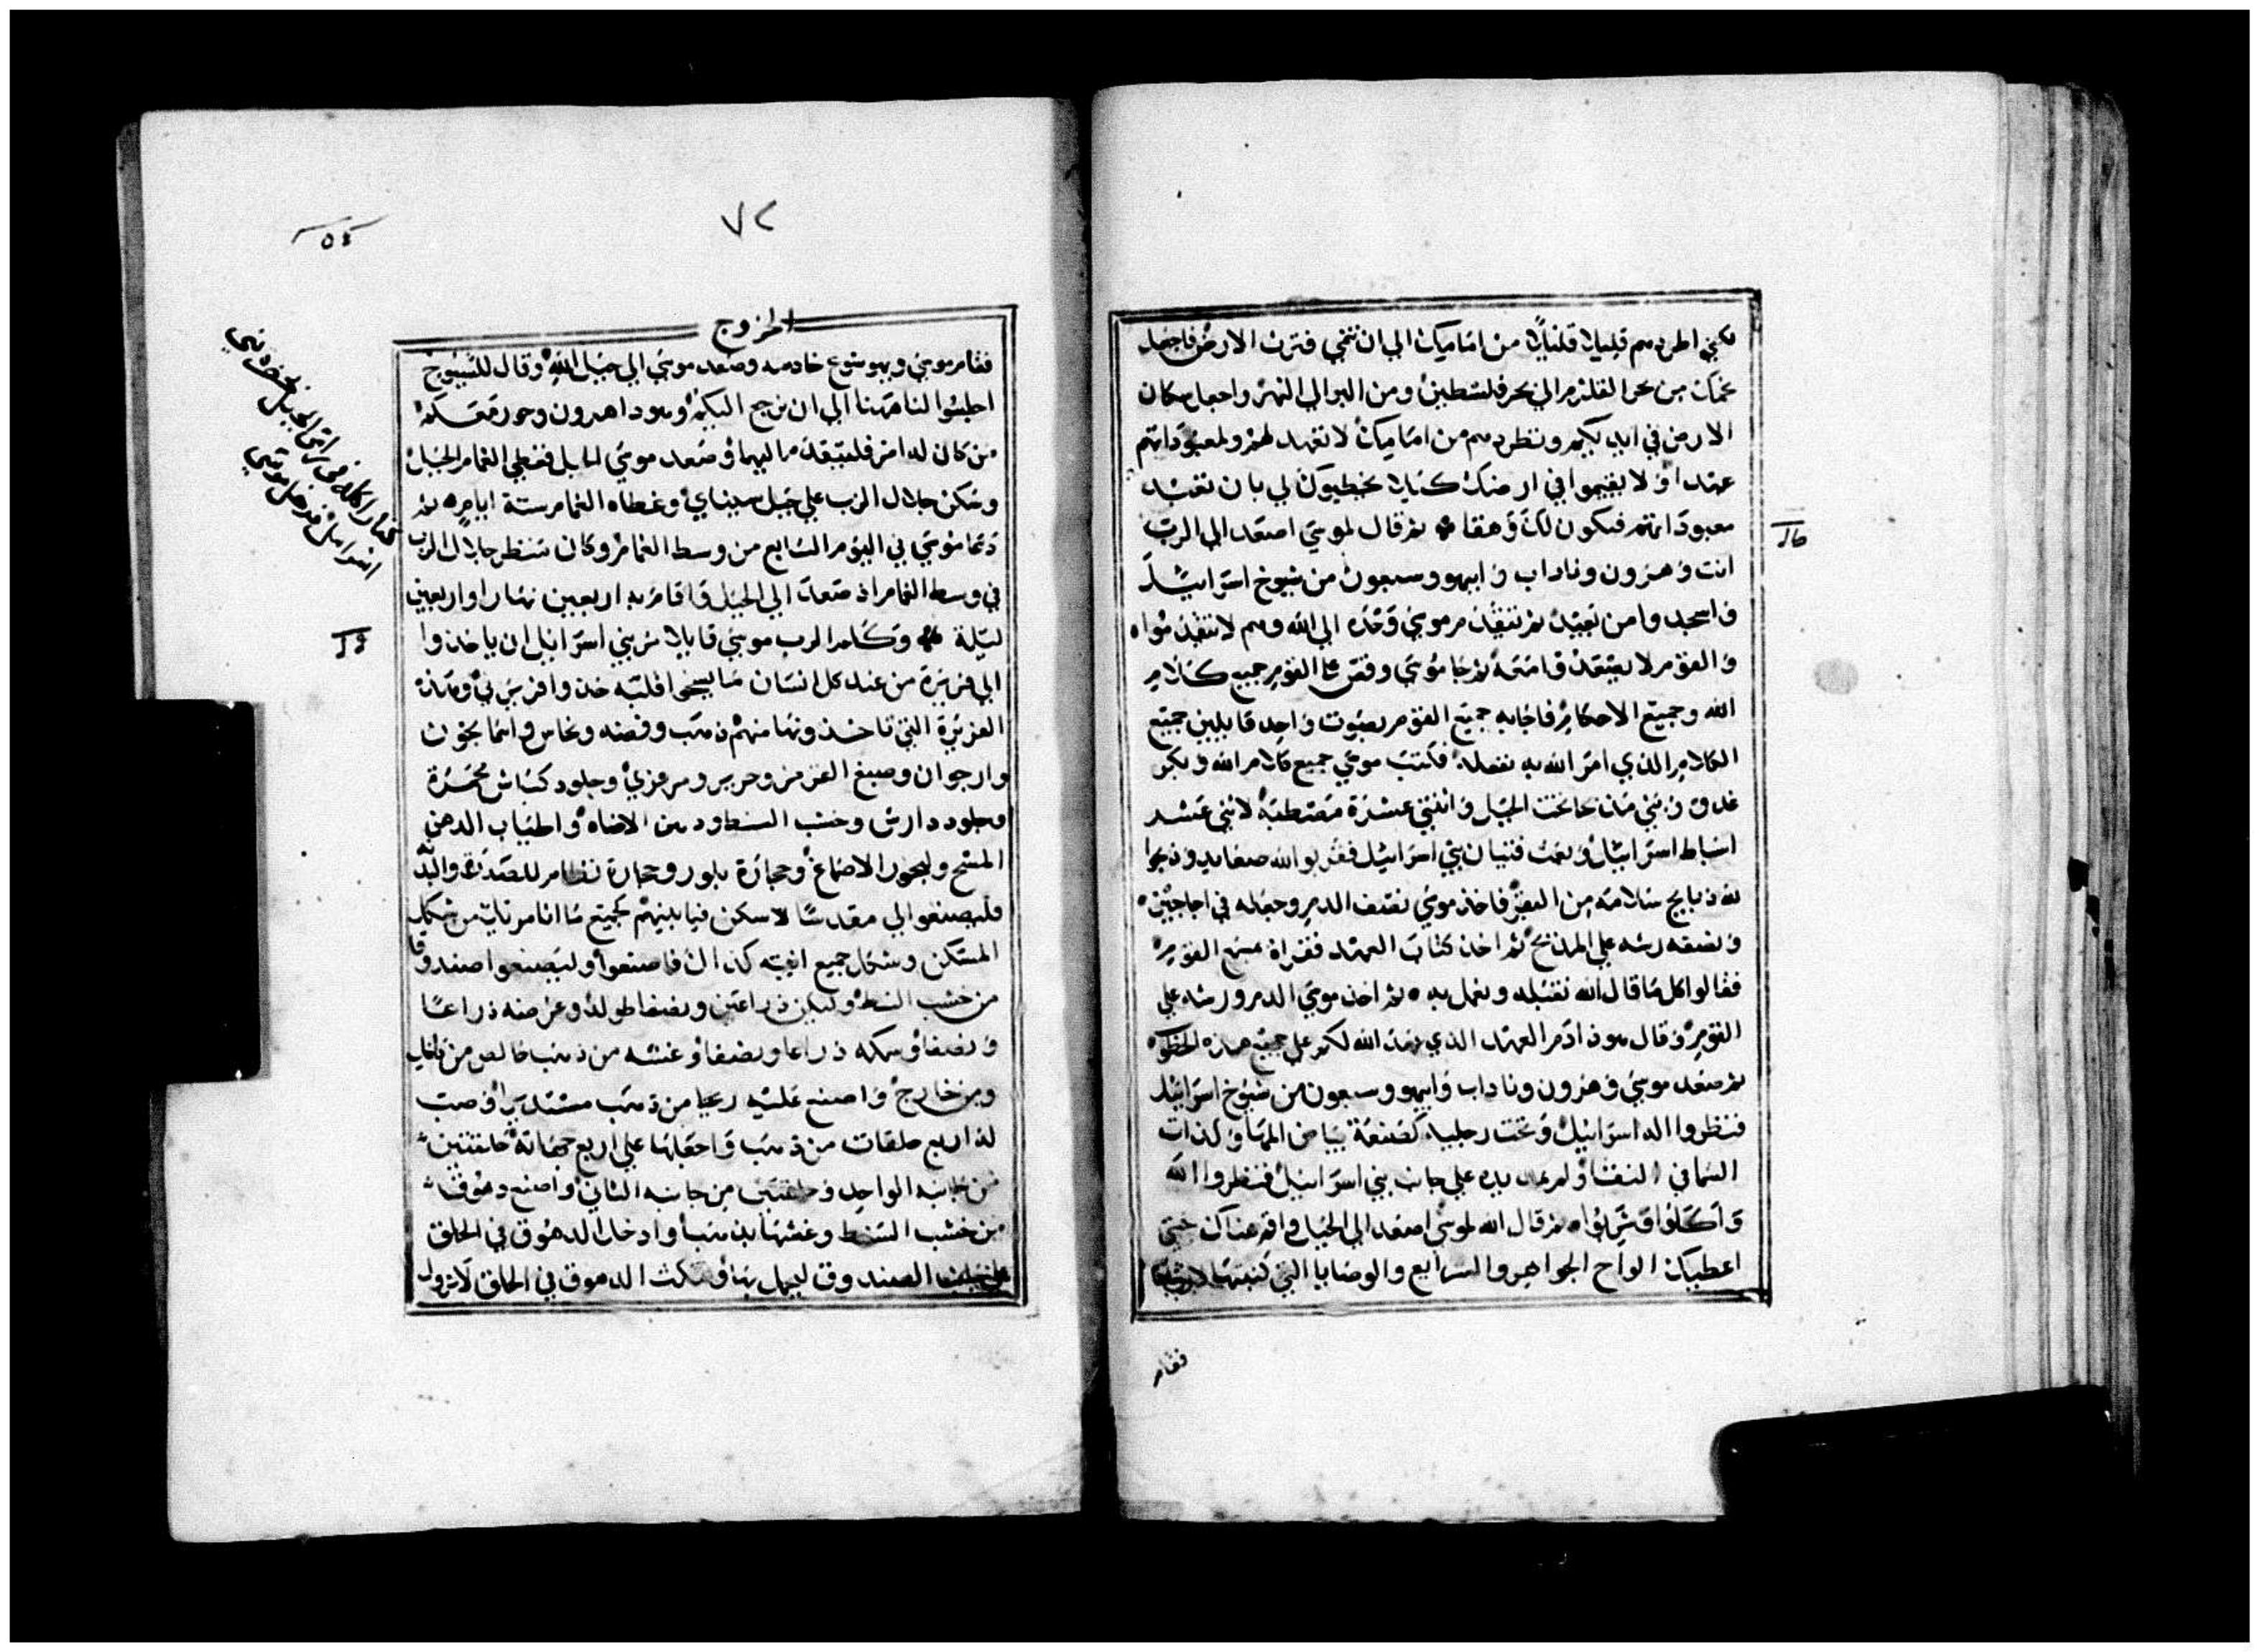 لكني اطردهم قليلا قليلا من اماميك الي ان تنمي فترث الارض فاجعل
تخمك من بحر القلزم الي بحر فلسطين ومن البوالي النهر واجعل سكان
الارض في ايديكم ونطردهم من اماميك لا تعهد لهم ولمعبوداتهم
عهدا ولا يقيموا في ارضك كيلا يخطيوك لي بان تعبد
معبوداتهم فيكون لك وهقا ثم قال لموسي اصعد الي الرب
انت وهرون وناداب وابيهو وسبعون من شيوخ اسراييل
واسجدوا من بعيد ثم يتقدم موسي وحده الي الله وهم لا يتقدموا
والقوم لا يصعد وامعه ثم جا موسي وقص علي القوم جميع كلام
الله وجميع الاحكام فاجابه جميع القوم بصوت واحد قايلين جميع
الكلام الذي امر الله به نفعله فكتب موسي جميع كلام الله وبكر
غدوة وبني مذبحا تحت الجبل واثنتي عشرة مصطبة لاثني عشر
اسباط اسراييل وبعث فتيان بني اسراييل فقربوا لله صعايد وذبحوا
لله ذبايح سلامة من البقر فاخذ موسي نصف الدم وجعله في اجاجين
ونصفه رشه علي المذبح ثم اخذ كتاب العهد فقراه القوم
فقالوا كل ما قال الله نقبله ونعمل به ثم اخذ موسي الدم ورشه علي
القوم وقال هوذا دم العهد الذي عهد الله لكم علي جميع هذه
ثم صعد موسي وهرون وناداب وابيهو وسبعون من شيوخ اسراييل
فنظروا اله اسراييل وتحت رجليه كصنعة بياض المها وكذات
السما في النقا ولم يمد يده علي جانب بني اسراييل فنظروا الله
واكلوا وشربوا ثم قال الله لموسي اصعد الي الجبل واقم هناك حتي
اعطيك الواح الجواهر والشرايع والوصايا التي كتبتها لارشادها
فقام
٧٢
الخروج
فقام موسي ويهوشوع خادمه وصعد موسي الي جبل الله وقال للشيوخ
اجلسوا لنا هنا الي ان نرجع اليكم وهوذا هرون وحور معكم
من كان له امر فليتقدم اليهما وصعد موسي الجبل فغطي الغمام الجبل
وسكن جلال الرب علي جبل سيناي وغطاه الغمام ستة ايام ثم
دعا موسي في اليوم السابع من وسط الغمام وكان منظر جلال الرب
في وسط الغمام اذ صعد الي الجبل واقام به اربعين نهارا واربعين
ليلة وكلم الرب موسي قايلا مر بني اسراييل ان ياخذوا
الي فريزة من عند كل انسان ما يسخي قلبه خذوا فريزتي وهذه
الفريزة التي تاخذونها منهم ذهب وفضه ونحاس واسمانجون
وارجوان وصبغ القرمز وحرير ومرعزي وجلود كباش محمرة
وجلود دارش وخشب السنط ودهن الاضاه واطياب الدهن
المسح ولبخور الاصماغ وحجارة بلور وحجارة نظام للصدرة والبد
فليصنعوا لي مقدسا لاسكن فيما بينهم كجميع ما انا مريك من شكل
المسكن وشكل جميع انيته كذلك فاصنعوا وليصنعوا صندوقا
من خشب السنط وليكن ذراعين ونصفا طوله وعرضه ذراعا
ونصفا وسمكه ذراعا ونصفا وغشه من ذهب خالص من داخل
ومن خارج واصنع عليه زيجا من ذهب مستدير وصب
له اربع حلقات من ذهب واجعلها علي اربع جهاته حلقتين
من جانبه الواحد وحلقتين من جانبه الثاني واصنع دهوق
من خشب السنط وغشها بذهب وادخل الدهوق في الحلق
علي جانب الصندوق ليحمل بها ومكث الدهوق في الحلق لا تزول